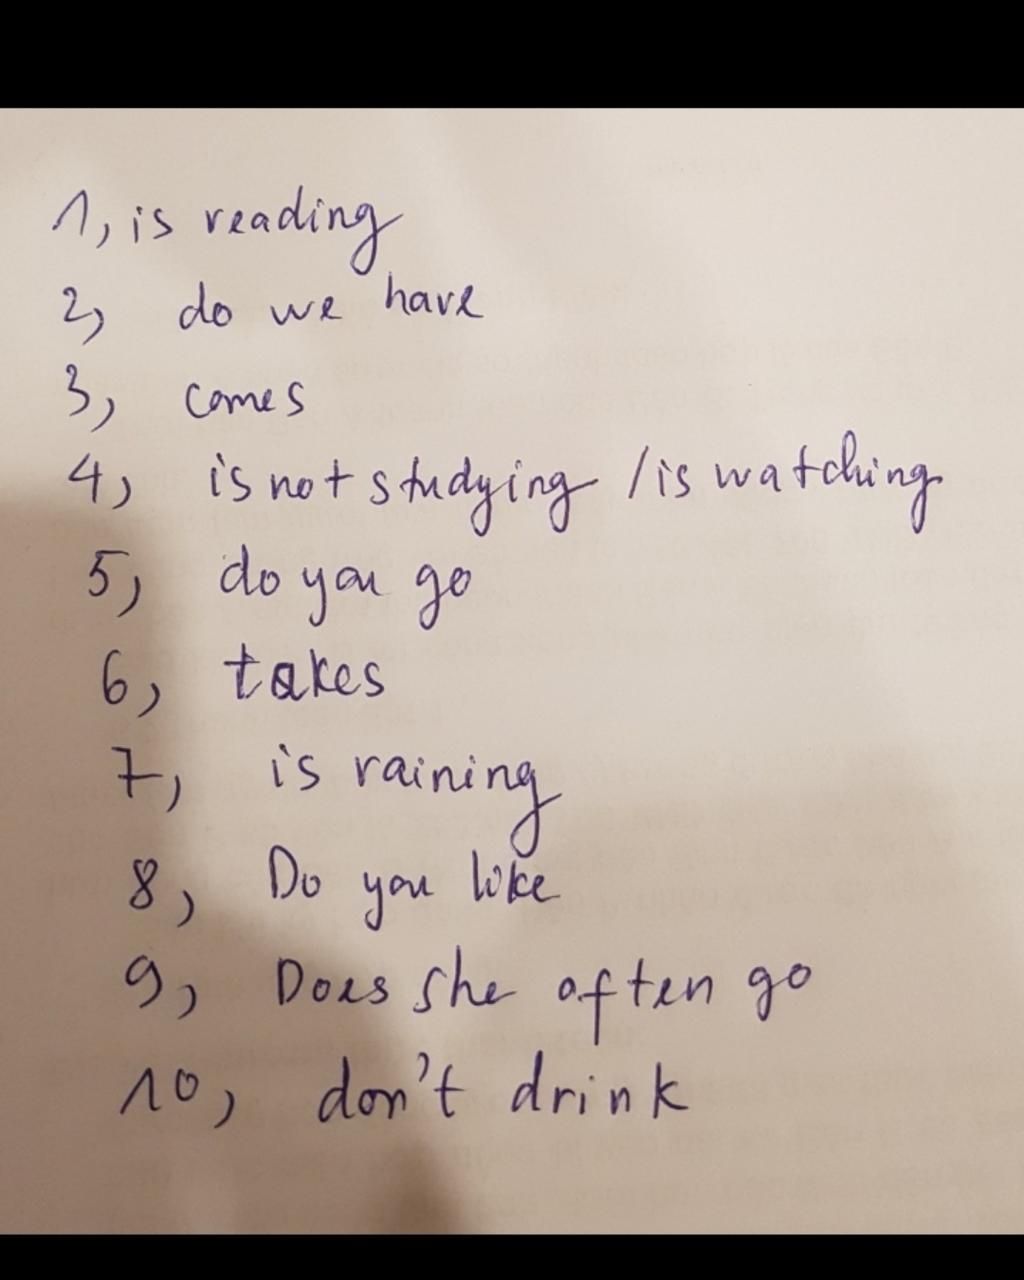 1, is reading
2, do we have
3, comes
4, is not studying / is watching
5, do you go
6, takes
7, is raining
8, Do you like
9, Does she often go
10, don't drink